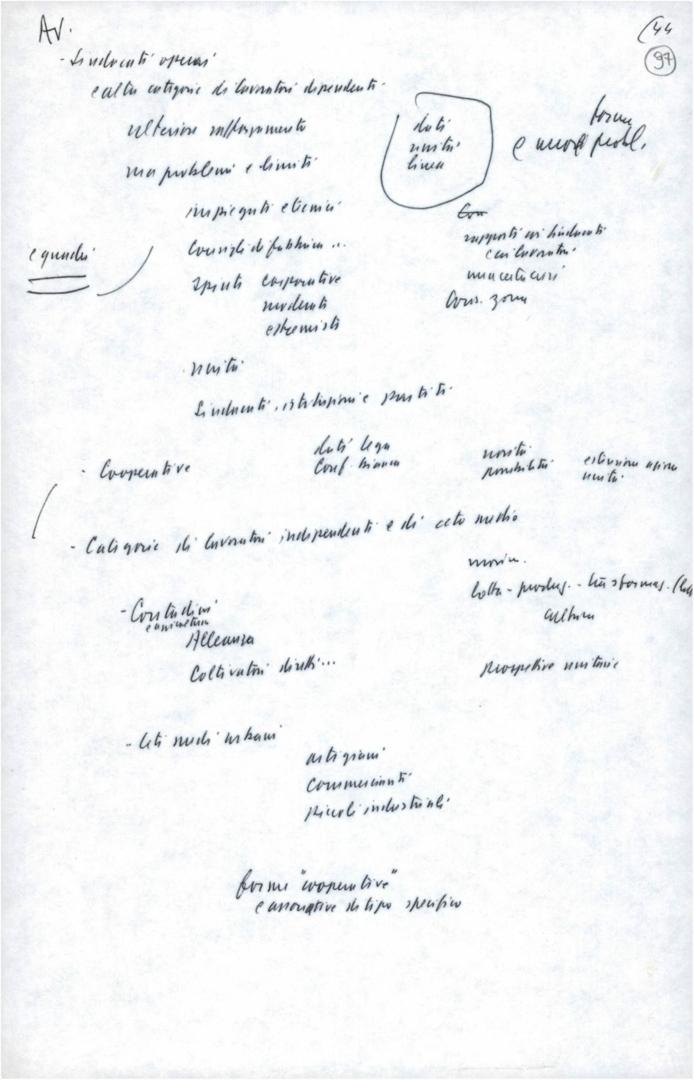 AV.
(44
97
- Sindacati operai
e altre categorie di lavoratori dipendenti.
ulteriore rafforzamento
ma problemi e limiti
dati
unità
linea
forme
e nuovi probl.
impiegati e tecnici
Consigli di fabbrica ...
e quadri
spinte corporative
moderate
estremiste
rapporti coi sindacati
coi lavoratori
Cons. zona
unità
Sindacati, istituzioni e partiti
- Cooperative
dati lega
Conf. bianca
novità
possibilità
estensione
unità
- Categorie di lavoratori indipendenti e di ceto medio
- Contadini
Alleanza
Coltivatori diretti...
lotta - produz. - trasformaz.
cultura
prospettive unitarie
- Ceti medi urbani
artigiani
commercianti
piccoli industriali
forme "cooperative"
e associative di tipo specifico